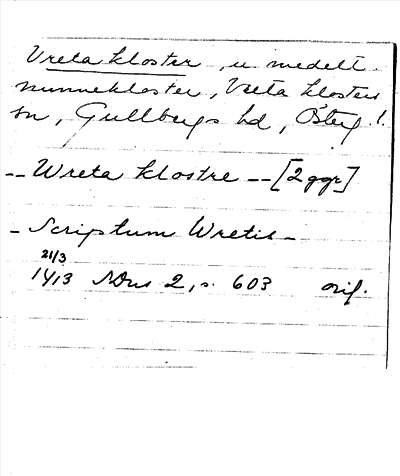 Vreta kloster, u. medelt.
nunnekloster, Vreta klosters
sn, Gullbergs hd, Östg!
-- Wreta klostre -- [2 ggr]
- Scriptum Wretis -
21/3
1413 SDns 2, s. 603 orig.